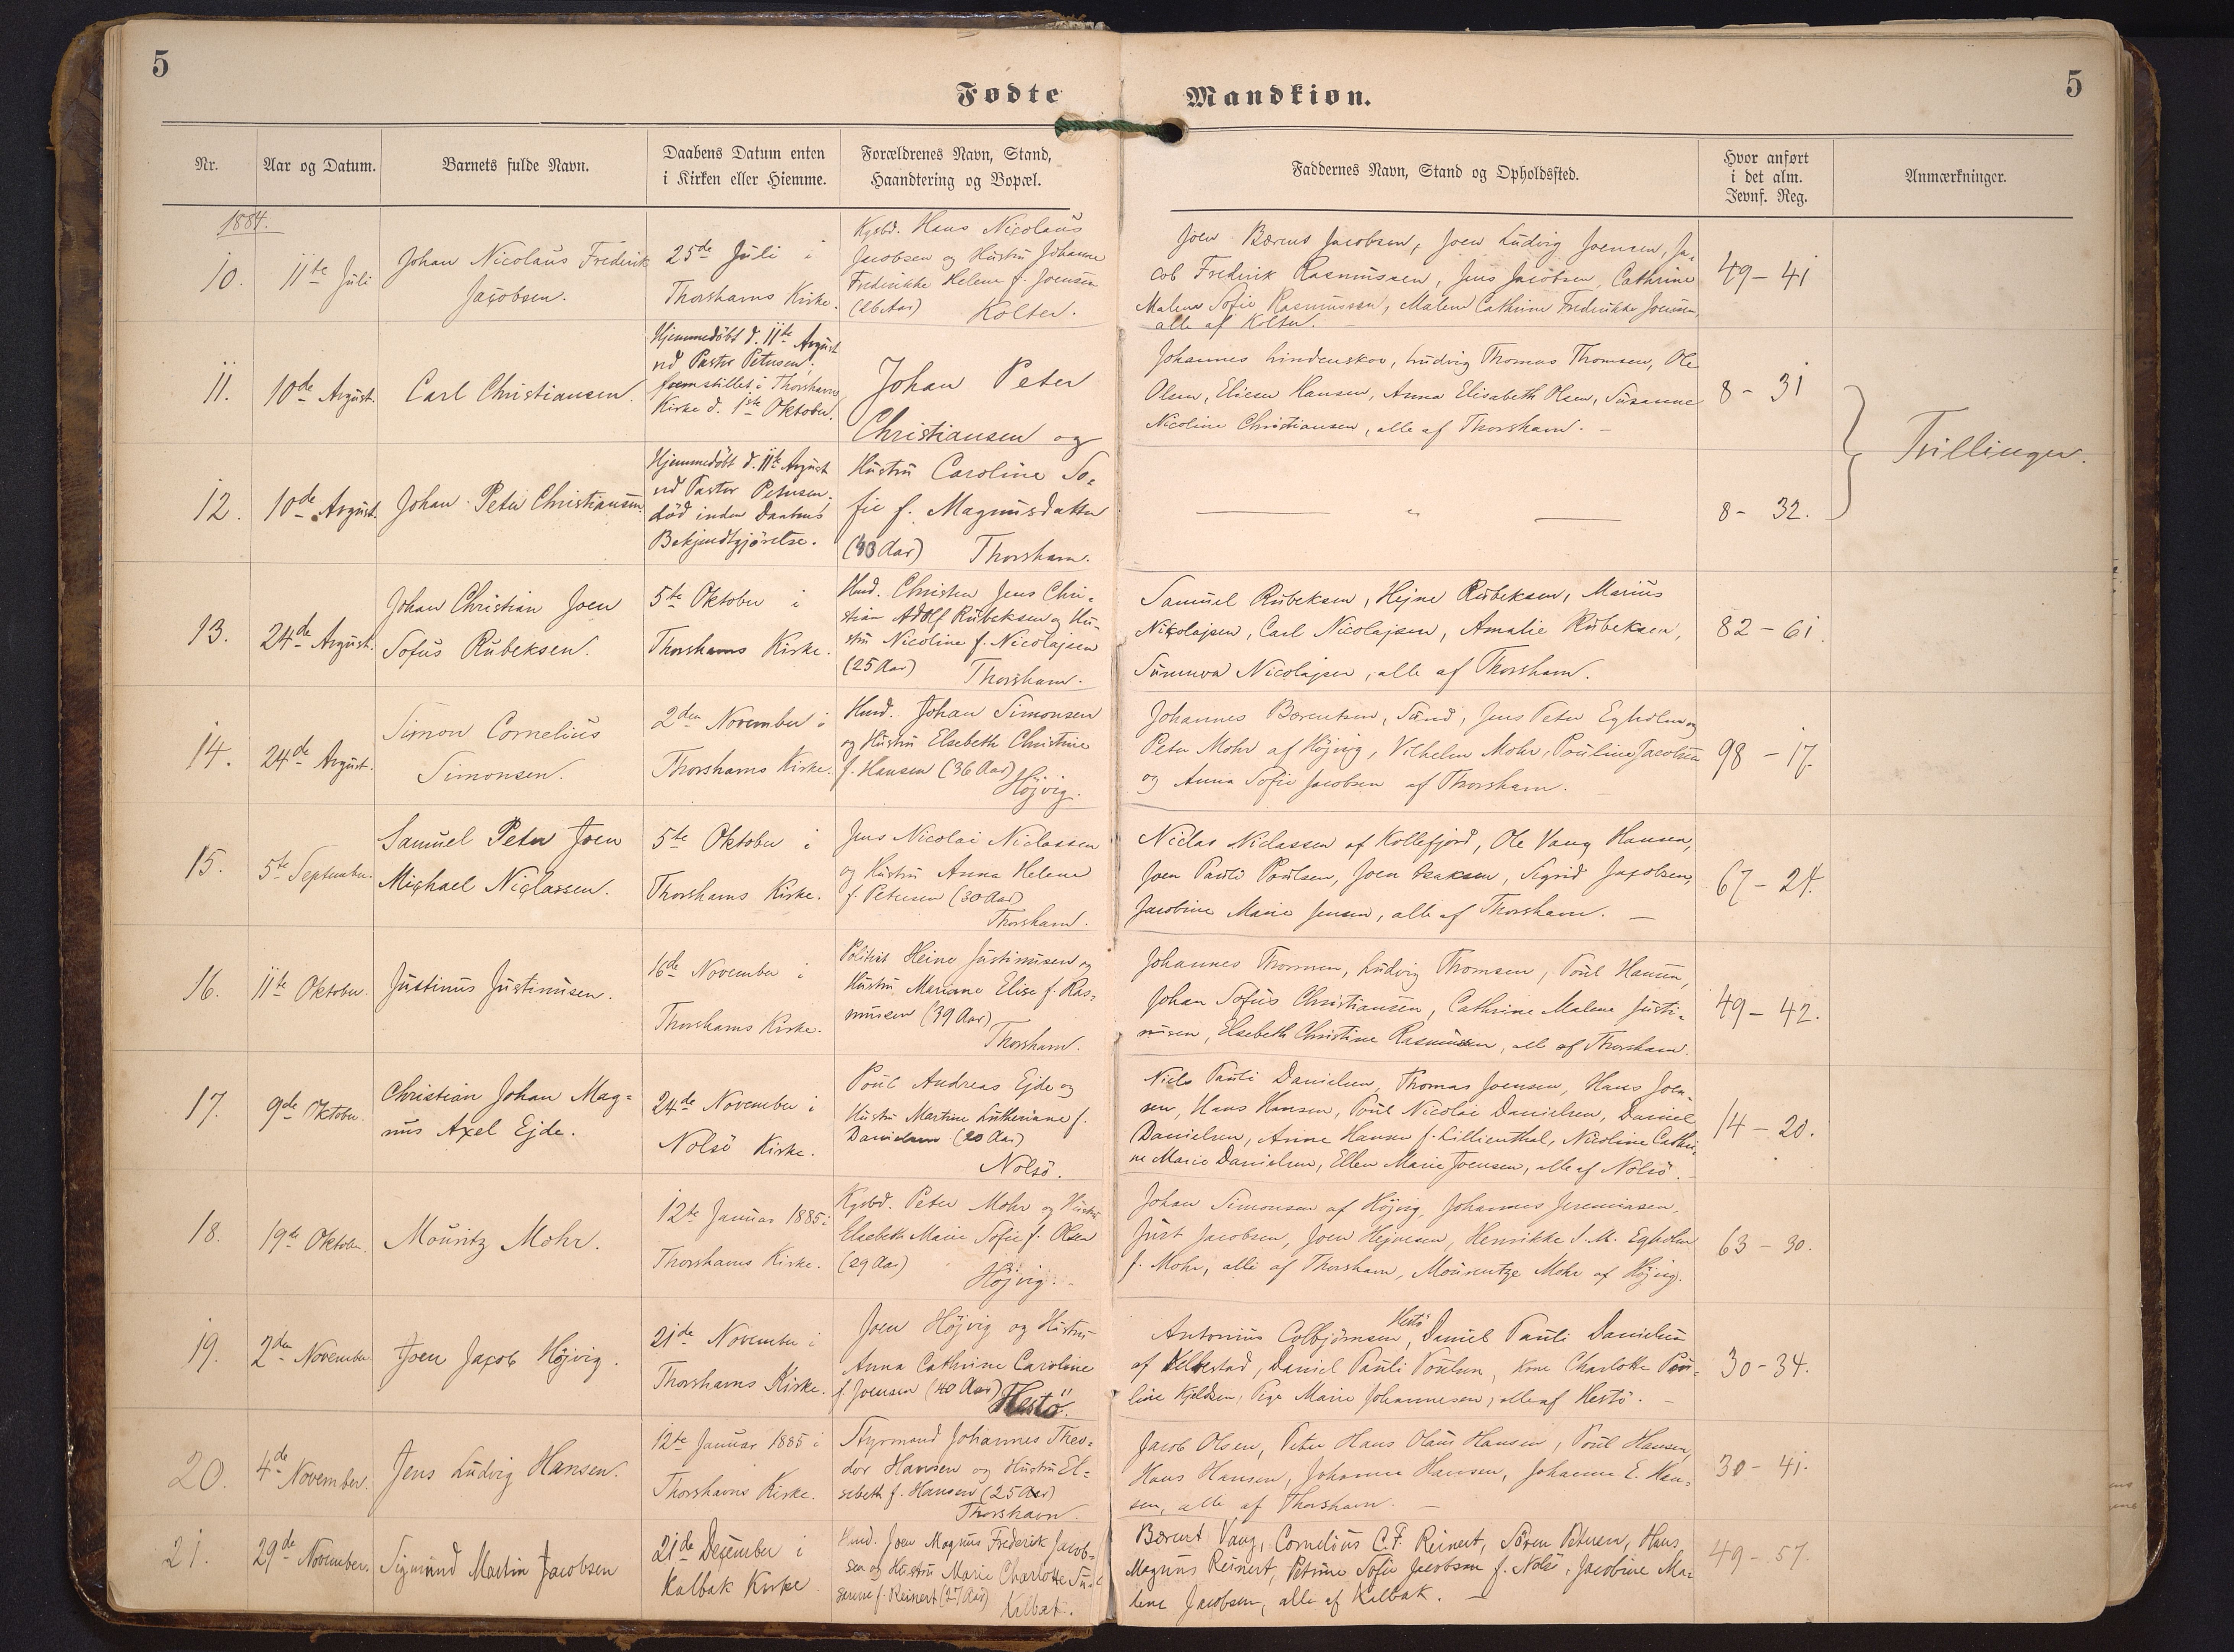 5
5
Fødte
Mandkiøn.
Nr.
Aar og Datum.
Barnets fulde Navn.
Daabens Datum enten
i Kirken eller Hiemme.
Forældrenes Navn, Stand,
Haandtering og Bopæl.
Faddernes Navn, Stand og Opholdssted.
Hvor anført
i det alm.
Jevnf. Reg.
Anmærkninger.
1884.
10.
11te Juli
Johan Nicolaus Frederik
Jacobsen.
25de Juli i
Thorshavns Kirke.
Kgsbd. Hans Nicolaus
Jacobsen og Hustru Johanne
Frederikke Helene f. Joensen
(26 Aar) Kolter.
Joen Barens Jacobsen, Joen Ludvig Joensen, Ja-
cob Frederik Rasmussen, Jens Jacobsen, Cathrine
Malene Sofie Rasmussen, Malene Cathrine Fredrikke Joensen,
alle af Kolter.
49 - 41
11.
10de August.
Carl Christiansen.
Hjemmedöbt d. 11te August
ved Pastor Petersen;
fremstillet i Thorshavns
Kirke d. 1ste Oktober.
Johan Peter
Christiansen og
Hustru Caroline So-
fie f. Magnusdatter
(43 Aar) Thorshavn.
Johannes Lindenskov, Ludvig Thomas Thomsen, Ole
Olsen, Eliesen Hansen, Anna Elisabeth Olsen, Susanne
Nicoline Christiansen, alle af Thorshavn. -
8 - 31
Tvillinger.
12.
10de August.
Johan Peter Christiansen.
Hjemmedöbt d. 11te August
ved Pastor Petersen.
död inden Daabens
Bekjendtgjörelse.
— " —
8 - 32.
13.
24de August.
Johan Christian Joen
Sofus Rubeksen.
5te Oktober i
Thorshavns Kirke.
Hmd. Christen Jens Chri-
stian Adolf Rubeksen og Hu-
stru Nicoline f. Nicolajsen
(25 Aar) Thorshavn.
Samuel Rubeksen, Hejne Rubeksen, Marius
Nikolajsen, Carl Nicolajsen, Amalie Rubeksen,
Sunneva Nicolajsen, alle af Thorshavn.
82 - 61.
14.
24de August.
Simon Cornelius
Simonsen.
2den November i
Thorshavns Kirke.
Hmd. Johan Simonsen
og Hustru Elsebeth Christine
f. Hansen (36 Aar)
Höjvig.
Johannes Barentsen, Sund, Jens Peter Egholm og
Peter Mohr af Höjvig, Vilhelm Mohr, Pouline Jacobsen
og Anna Sofie Jacobsen af Thorshavn. -
98 - 17.
15.
5te September.
Samuel Peter Joen
Michael Niclassen.
5te Oktober i
Thorshavns Kirke.
Jens Nicolai Niclassen
og Hustru Anna Helene
f. Petersen (30 Aar)
Thorshavn.
Niclas Niclassen af Kollefjord, Ole Vang Hansen,
Joen Pauli Poulsen, Joen Isaksen, Sigrid Jacobsen,
Jacobine Marie Jensen, alle af Thorshavn. -
67 - 24.
16.
11te Oktober.
Justinus Justinusen.
16de November i
Thorshavns Kirke.
Politibt. Heine Justinusen og
Hustru Mariane Elise f. Ras-
mussen (39 Aar)
Thorshavn.
Johannes Thomsen, Ludvig Thomsen, Poul Hansen,
Johan Sofus Christiansen, Cathrine Malene Justi-
nusen, Elsebeth Christine Rasmussen, alle af Thorshavn.
49 - 42.
17.
9de Oktober.
Christian Johan Mag-
nus Axel Ejde.
24de November i
Nolsö Kirke.
Poul Andreas Ejde og
Hustru Martine Lutheriane f.
Danielsen (20 Aar)
Nolsö.
Niels Pauli Danielsen, Thomas Joensen, Hans Joen-
sen, Hans Hansen, Poul Nicolai Danielsen, Daniel
Danielsen, Anne Hansen f. Lillienthal, Nicoline Cathri-
ne Marie Danielsen, Ellen Marie Joensen, alle af Nolsö.
14 - 20.
18.
19de Oktober.
Mouritz Mohr.
12te Januar 1885 i
Thorshavns Kirke.
Kgsbd. Peter Mohr og Hustru
Elsebeth Marie Sofie f. Olsen
(29 Aar)
Höjvig.
Johan Simonsen af Höjvig, Johannes Jeremiasen,
Just Jacobsen, Joen Hejnesen, Henrikke S. M. Egholm
f. Mohr, alle af Thorshavn, Mourentze Mohr af Höjvig.
63 - 30.
19.
2den November
Joen Jacob Höjvig.
21de November i
Thorshavns Kirke.
Joen Höjvig og Hustru
Anna Cathrine Caroline
f. Joensen (40 Aar)
Hestö.
Hestö
Antonius Colbjörnsen, Daniel Pauli Danielsen
af Velbestad, Daniel Pauli Poulsen, Kone Charlotte Pou-
line Kjeldsen, Pige Marie Johannesen, alle af Hestö. -
30 - 34.
20.
4de November.
Jens Ludvig Hansen.
12te Januar 1885 i
Thorshavns Kirke.
Styrmand Johannes Theo-
dor Hansen og Hustru El-
sebeth f. Hansen (25 Aar)
Thorshavn.
Jacob Olsen, Peter Hans Olaus Hansen, Poul Hansen,
Hans Hansen, Johanna Hansen, Johanne E. Han-
sen, alle af Thorshavn. -
30 - 41.
21.
29de November.
Sigmund Martin Jacobsen
21de December i
Kalbak Kirke
Hmd. Joen Magnus Frederik Jacob-
sen og Hustru Marie Charlotte Su-
sanne f. Reinert (27 Aar) Kalbak.
Barent Vang, Cornelius C. F. Reinert, Sören Petersen, Hans
Magnus Reinert, Petrine Sofie Jacobsen f. Nolsö, Jacobine Ma-
lene Jacobsen, alle af Kalbak. -
49 - 57.